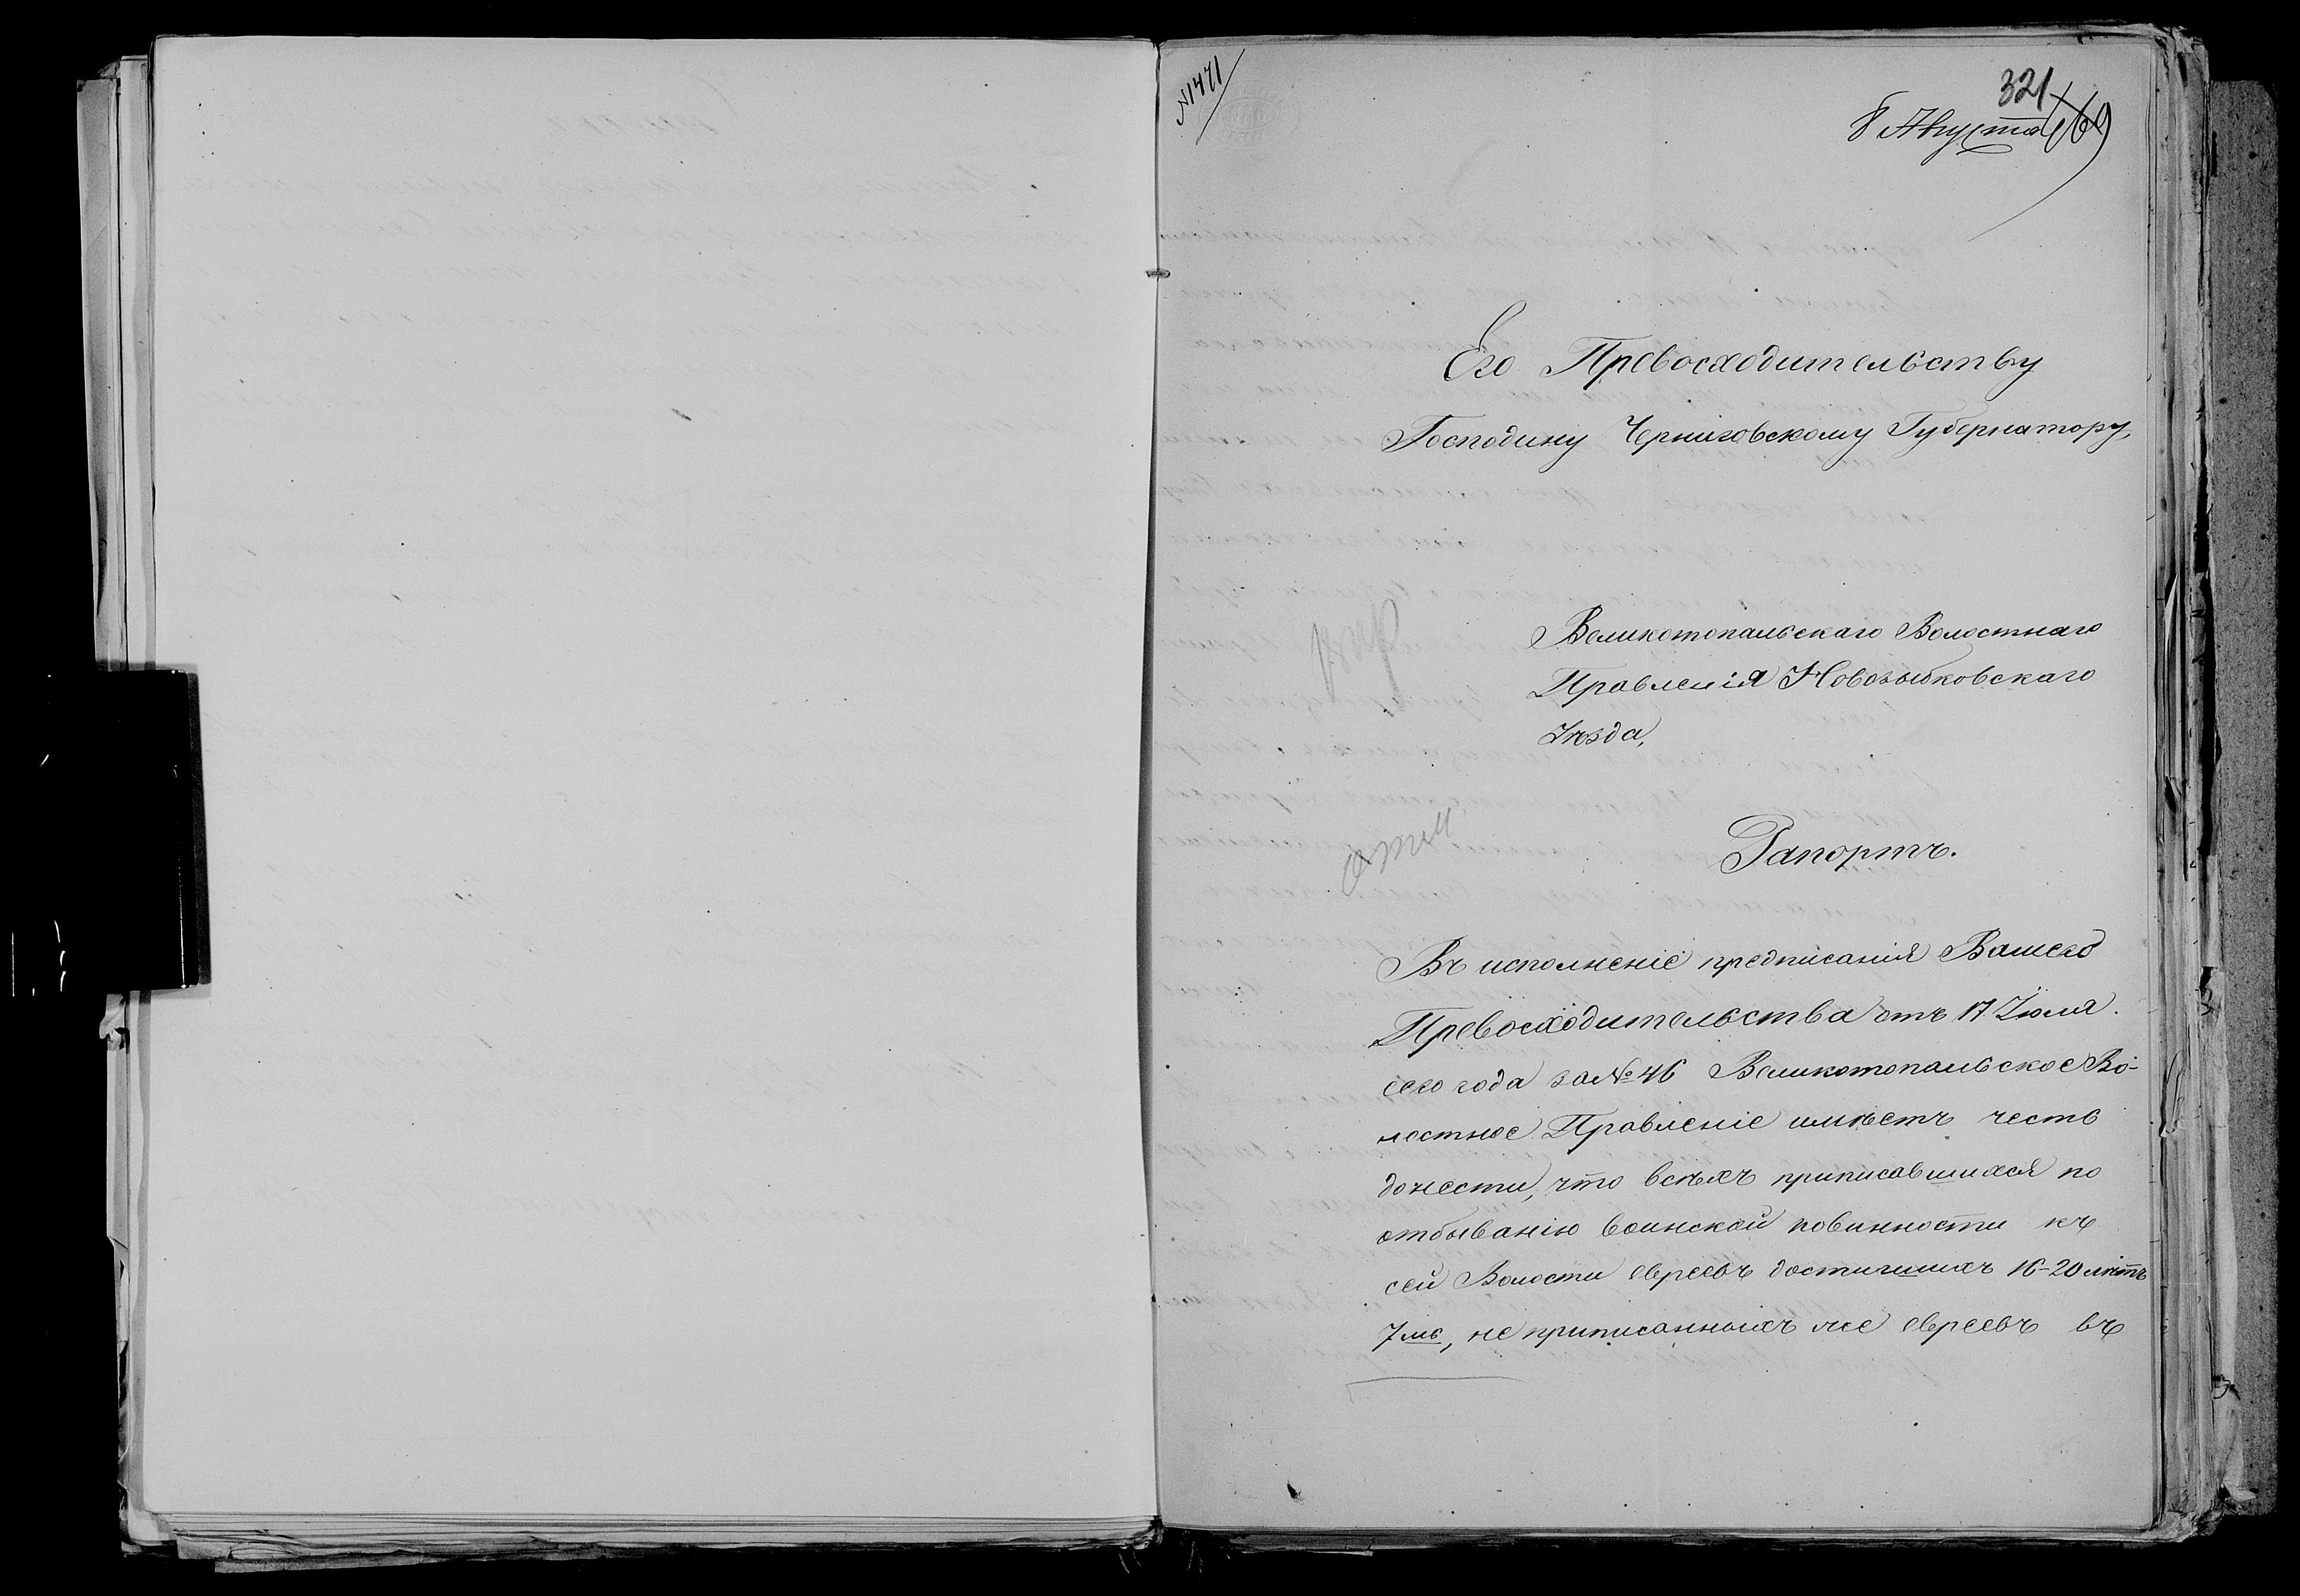 №1471
321
8 Августа
Его Превосходительству
Господину Черниговскому Губернатору,
Великотопальскаго Волостнаго
Правленія Новозыбковскаго
Уѣзда,
Рапортъ.
Въ исполненіе предписанія Вашего
Превосходительства отъ 17 Іюля
сего года за № 46 Великотопальское Во-
лостное Правленіе имѣетъ честь
донести, что всѣхъ приписавшихся по
отбыванію воинской повинности къ
сей Волости евреевъ достигшихъ 16-20 лѣтъ
7мь, не приписанныхъ же евреевъ въ